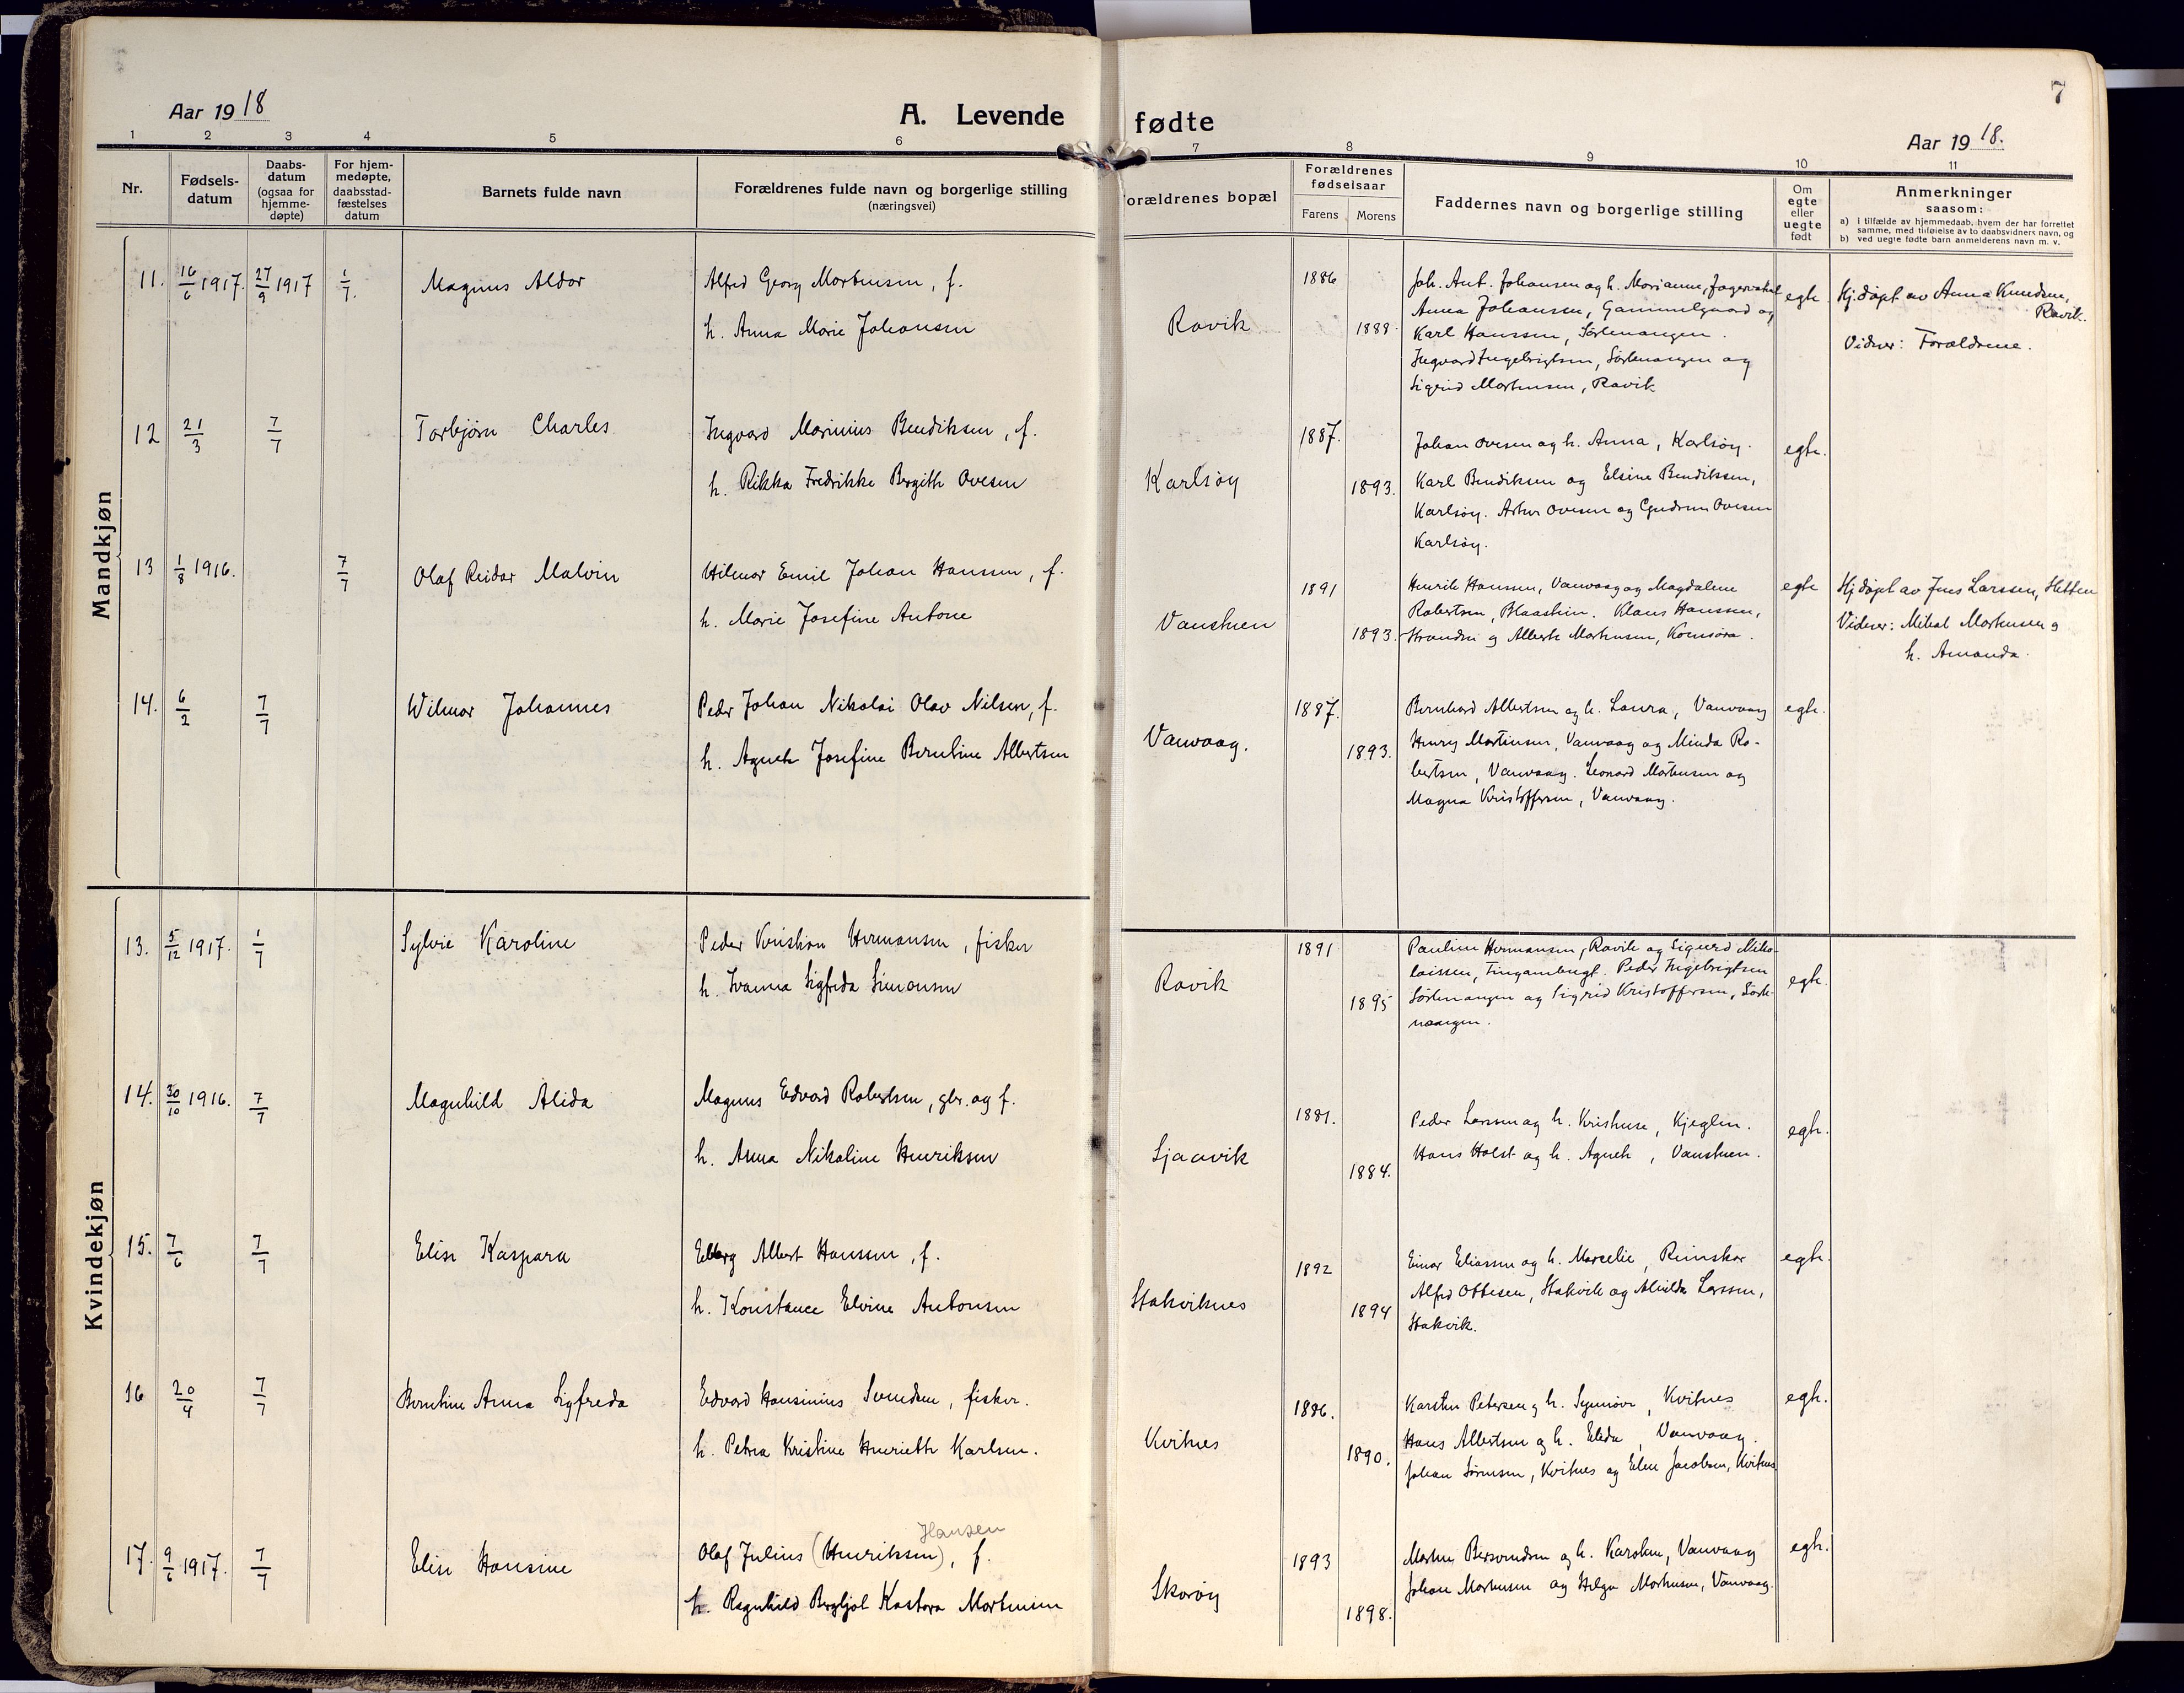 7
Aar 1918
A. Levende fødte
Aar 1918.
1 2 3 4 5 6 7 8 9 10 11
Nr.
Fødsels-
datum
Daabs-
datum
(ogsaa for
hjemme-
døpte)
For hjem-
medøpte,
daabsstad-
fæstelses
datum
Barnets fulde navn
Forældrenes fulde navn og borgerlige stilling
(næringsvei)
orældrenes bopæl
Forældrenes
fødselsaar
Farens Morens
Faddernes navn og borgerlige stilling
Om
egte
eller
uegte
født
Anmerkninger
saasom:
a) i tilfælde av hjemmedaab, hvem der har forrettet
samme, med tilføielse av to daabsvidners navn, og
b) ved uegte fødte barn anmelderens navn m. v.
Mandkjøn
11. 16/6 1917. 27/9 1917 1/7. Magnus Aldor
Alfred Georg Mortensen, f.
h. Anna Marie Johansen
Ravik
1886
1888
Joh. Ant. Johansen og h. Marianne,
Anna Johansen, Gammelgaard og
Karl Hanssen, Sørlenangen.
Ingvard Ingebrigtsen, Sørlenangen og
Sigrid Mortensen, Ravik
egte
Hj.døpt av Anna Knudsen,
Ravik.
Vidner: Forældrene.
12 21/3 7/7 Torbjørn Charles
Ingvard Marinius Bendiksen, f.
h. Rikka Fredrikke Bergithe Ovesen
Karlsøy
1887.
1893.
Johan Ovesen og h. Anna, Karlsøy.
Karl Bendiksen og Elsine Bendiksen,
Karlsøy. Artur Ovesen og Gudrun Ovesen
Karlsøy.
egte.
13 1/8 1916. 7/7 Olaf Reidar Malvin
Hilmar Emil Johan Hanssen, f.
h. Marie Josefine Antone
Vanstuen
1891
1893.
Henrik Hanssen, Vanvaag og Magdalene
Robertsen, Blaastein. Klaus Hanssen,
Stranden og Alberte Mortensen,
egte
Hj.døpt av Jens Larssen, Sletten
Vidner: Mikal Mortensen og
h. Amanda.
14. 6/2 7/7 Wilmar Johannes
Peder Johan Nikolai Olav Nilsen, f.
h. Agnete Josefine Berntine Albertsen
Vanvaag.
1887.
1893.
Bernhard Albertsen og h. Laura, Vanvaag
Henry Martinsen, Vanvaag og Minda Ro-
bertsen, Vanvaag. Leonard Mortensen og
Magna Kristoffersen, Vanvaag.
egte.
Kvindekjøn
13. 5/12 1917. 1/7 Sylvie Karoline
Peder Kristian Hermansen, fisker
h. Ivanna Sigfreda Simonsen
Ravik
1891
1895
Pauline Hermansen, Ravik og Sigurd Niko-
laissen, Peder Ingebrigtsen
Sørlenangen og Sigrid Kristoffersen, Sørle-
nangen.
egte.
14. 30/10 1916. 7/7 Magnhild Alida
Magnus Edvard Robertsen, gbr. og f.
h. Anna Nikoline Henriksen
Sjaavik
1881.
1884.
Peder Larssen og h. Kristense, Kjeglen.
Hans Holst og h. Agnete, Vanstuen.
egte.
15. 7/6 7/7 Elise Kaspara
Edberg Albert Hanssen, f.
h. Konstance Elvine Antonsen
Stakviknes
1892
1894
Einar Eliassen og h. Marselie, Reinskar
Alfred Ottesen, Stakvik og Alvilda Larssen,
Stakvik.
egte.
16 20/4 7/7 Berntine Anna Sigfreda
Edvard Hansinius Svendsen, fisker.
h. Petra Kristine Henriette Karlsen.
Kvitnes
1886.
1890.
Karsten Petersen og h. Synnøve, Kvitnes
Hans Albertsen og h. Elida, Vanvaag.
Johan Sørensen, Kvitnes og Elen Jacobsen, Kvitnes
egte.
17. 9/6 1917. 7/7 Elise Hansine
Hansen
Olaf Julius (Henriksen), f.
h. Ragnhild Bergljot Kastora Mortensen
Skorøy
1893
1898.
Morten Bersvendsen og h. Karoline, Vanvaag
Johan Mortensen og Helga Mortensen, Vanvaag.
egte.